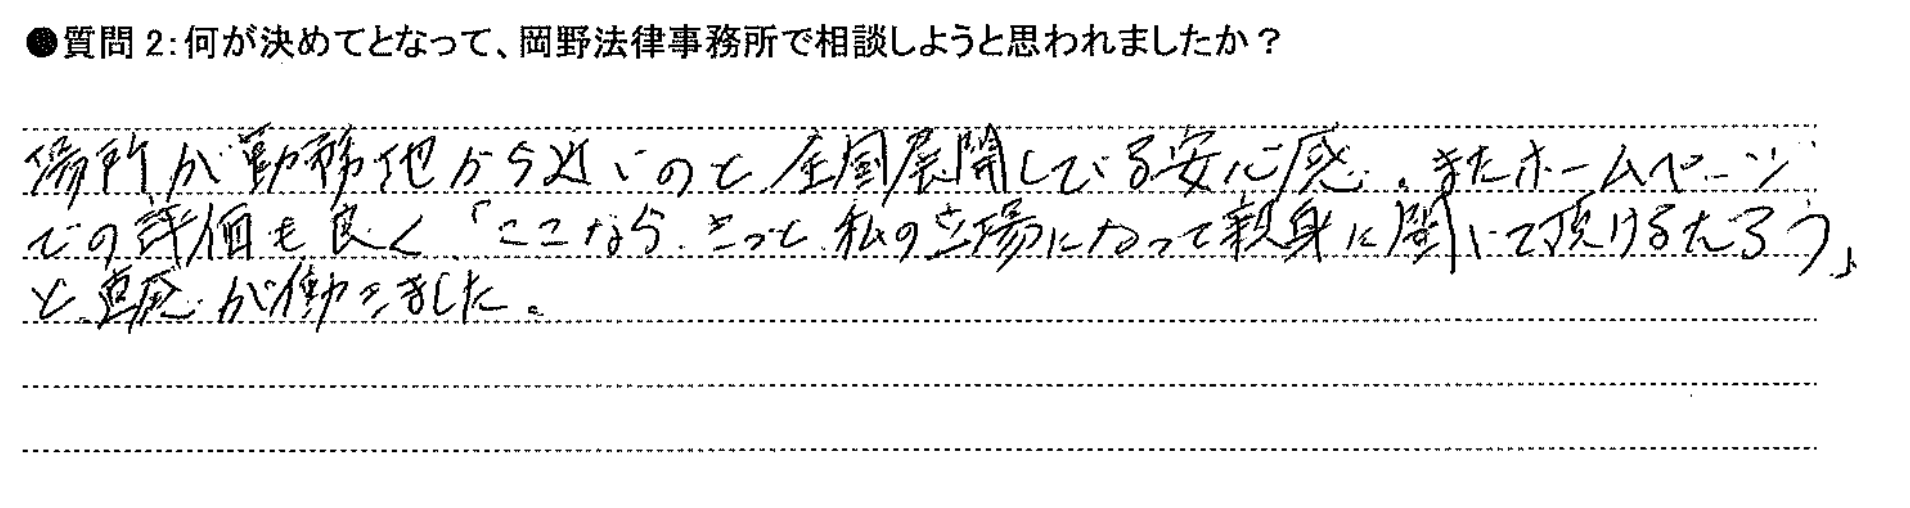 ●質問2:何が決めてとなって、岡野法律事務所で相談しようと思われましたか?
場所が勤務地から近いのと全国展開している安心感。またホームページ
での評価も良く「ここなら、きっと私の立場になって親身に聞いて頂けるだろう」
と直感が働きました。